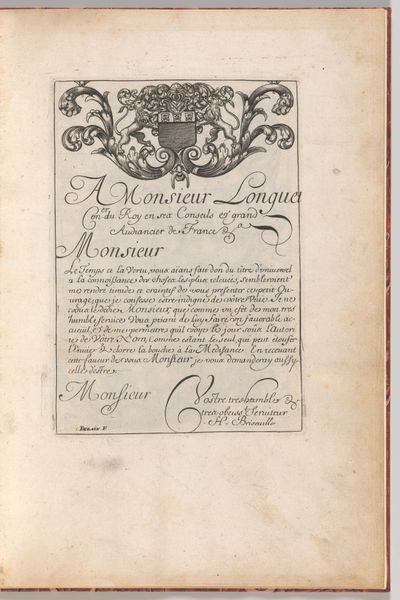 A Monsieur Longuet
Con.er du Roy en ses Conseils et grand
Audiancier de France &a
Monsieur
Le Temps et la Vertu, vous aians fait don du titre d'universel
a la connoissance des choses les plus relevées, sembleroient
me rendre timide et craintif de vous presenter ce petit Ou-
vrage, que je confesse estre indigne de votre Vüe. Je ne
vous le dédie Monsieur, que comme un effet de mon tres
humble service Vous priant de luy faire un favorable ac-
cueuil, et de me permettre qu'il voÿe le jour sous l'autori-
té de Votre Nom, Comme estant le seul, qui peut étoufer
l'Envie & clorre la bouche à la Médisance En recevant
cette faveur de vous Monsieur je vous demanderay aussy
celle d'estre.
Monsieur
Vostre tres humble &
tres obeiss.t Serviteur
H. Brisville
Berain F